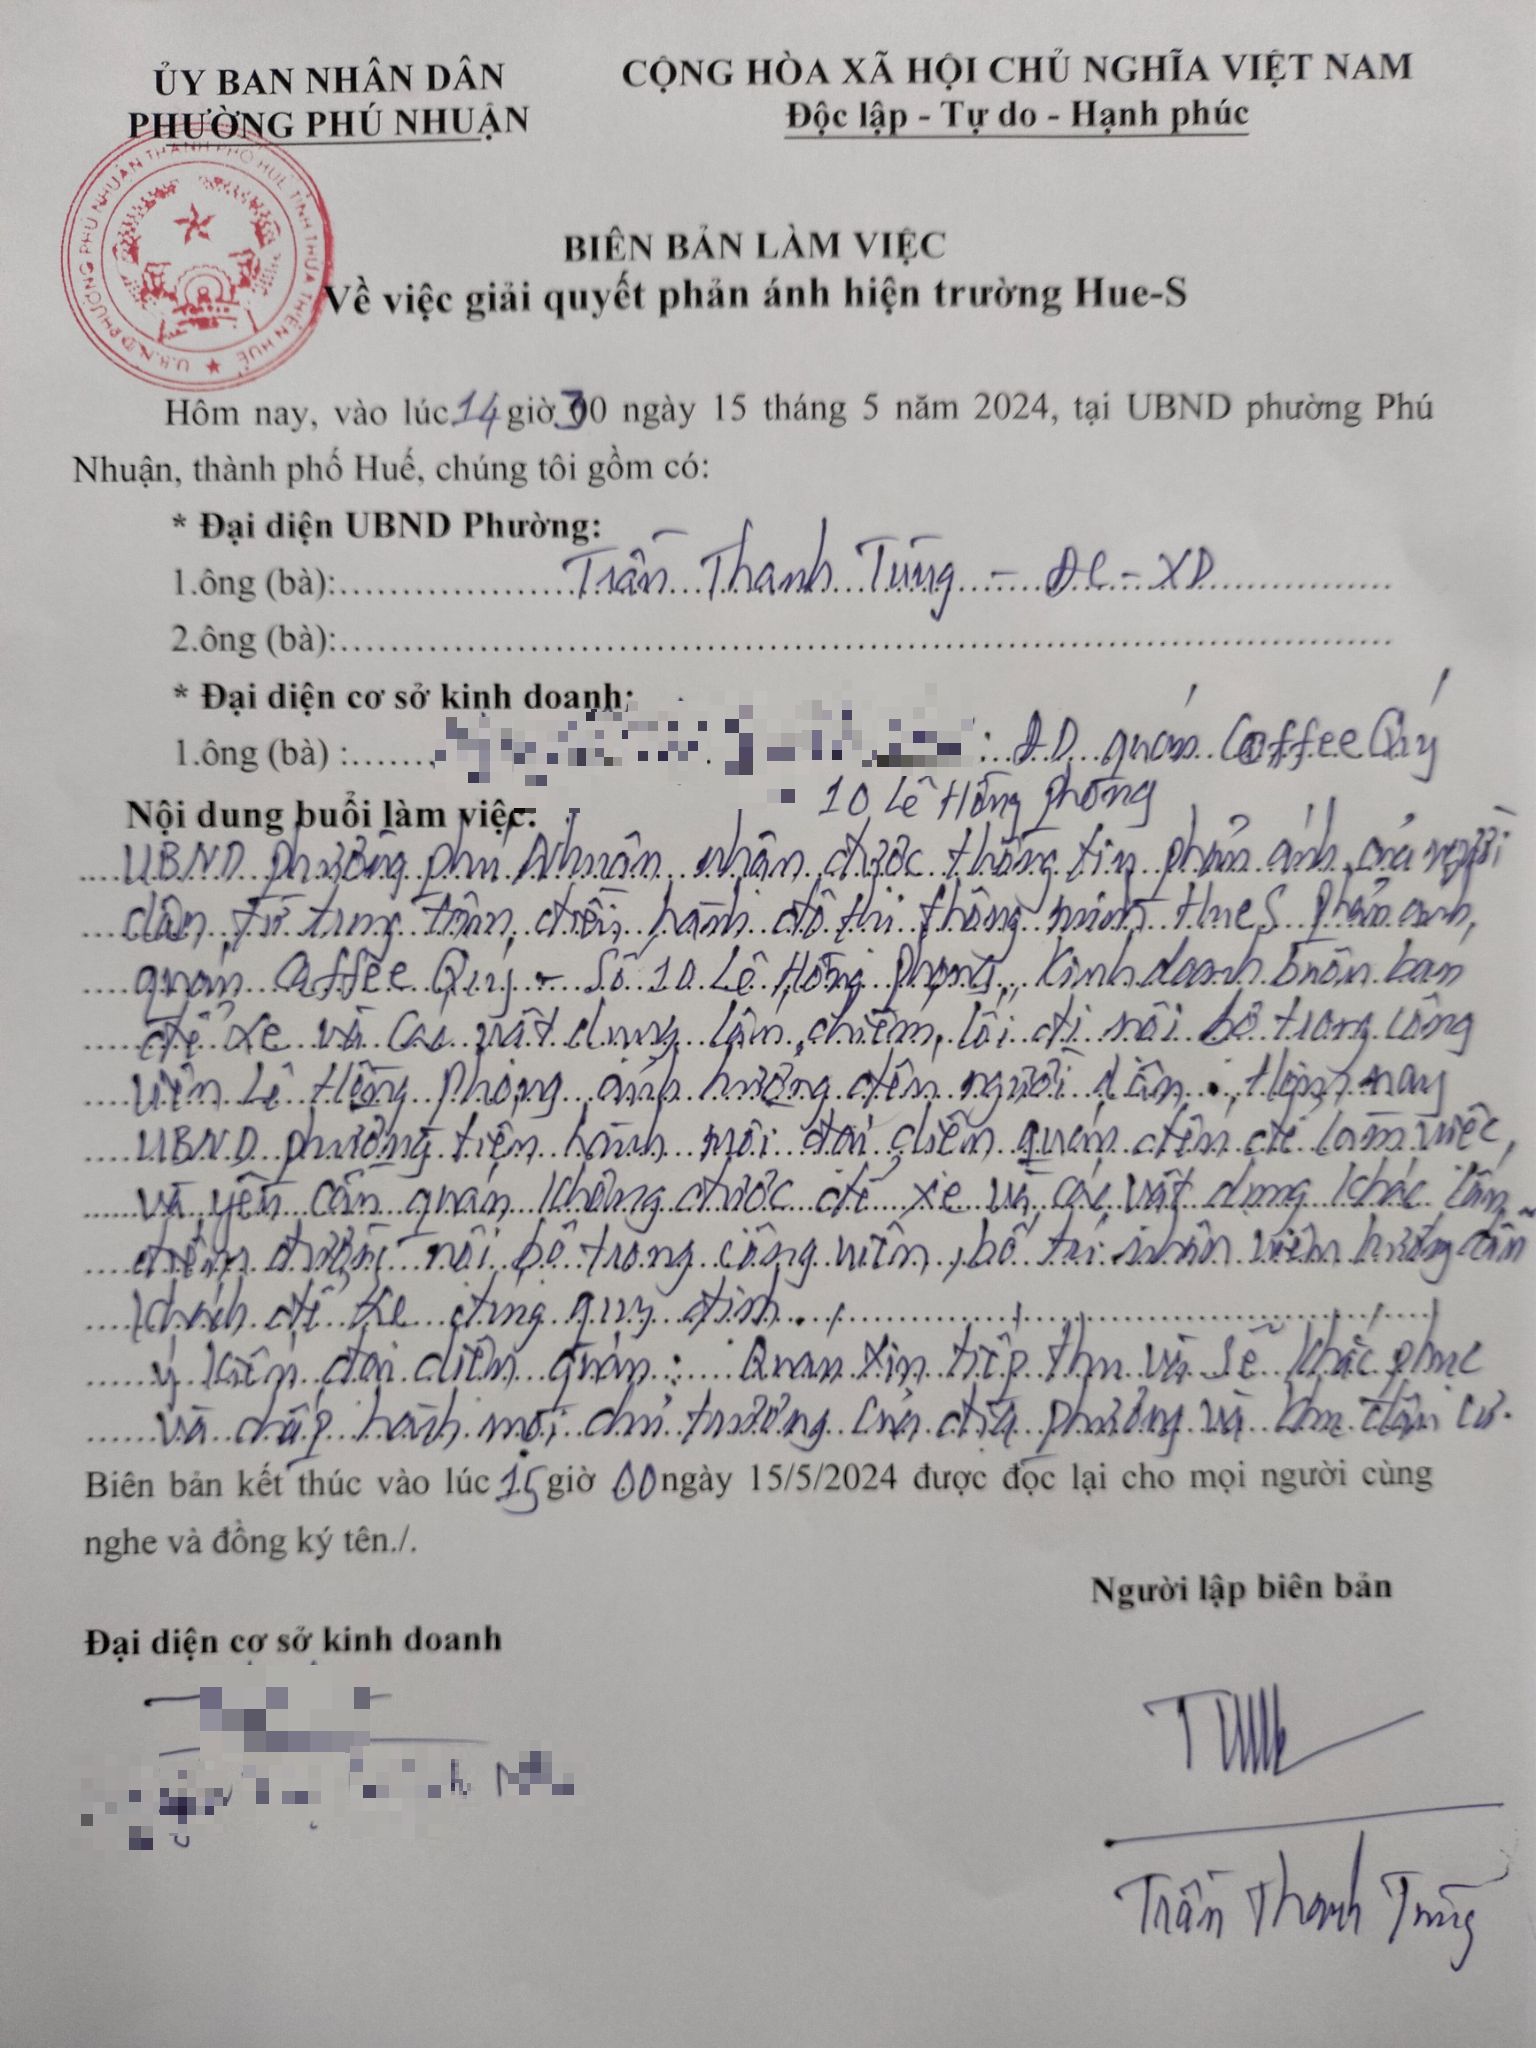 ỦY BAN NHÂN DÂN
PHƯỜNG PHÚ NHUẬN
CỘNG HÒA XÃ HỘI CHỦ NGHĨA VIỆT NAM
Độc lập - Tự do - Hạnh phúc
U.B.N.D PHƯỜNG PHÚ NHUẬN THÀNH PHỐ HUẾ TỈNH THỪA THIÊN HUẾ
BIÊN BẢN LÀM VIỆC
Về việc giải quyết phản ánh hiện trường Hue-S
Hôm nay, vào lúc 14 giờ 30 ngày 15 tháng 5 năm 2024, tại UBND phường Phú
Nhuận, thành phố Huế, chúng tôi gồm có:
* Đại diện UBND Phường:
1.ông (bà): Trần Thanh Tùng - ĐC - XD
2.ông (bà):
* Đại diện cơ sở kinh doanh:
1.ông (bà) : : Đ.D quán Coffee Qúy
10 Lê Hồng Phong
Nội dung buổi làm việc:
UBND phường phú Nhuận nhận được thông tin phản ánh của người
dân từ trung tâm điều hành đô thị thông minh HueS phản ánh,
quán Coffee Qúy - Số 10 Lê Hồng Phong, Kinh doanh buôn bán
để xe và các vật dụng lấn chiếm lối đi nội bộ trong công
viên Lê Hồng Phong ảnh hưởng đến người dân. Hôm nay
UBND phường tiến hành mời đại diện quán đến để làm việc,
và yêu cầu quán không được để xe và các vật dụng khác lấn
chiếm đường nội bộ trong công viên, bố trí nhân viên hướng dẫn
khách để xe đúng quy định.
ý kiến đại diện quán: Quán xin tiếp thu và sẽ khắc phục
và chấp hành mọi chủ trương của địa phương và khu dân cư.
Biên bản kết thúc vào lúc 15 giờ 00 ngày 15/5/2024 được đọc lại cho mọi người cùng
nghe và đồng ký tên./.
Người lập biên bản
Đại diện cơ sở kinh doanh
Trần Thanh Tùng